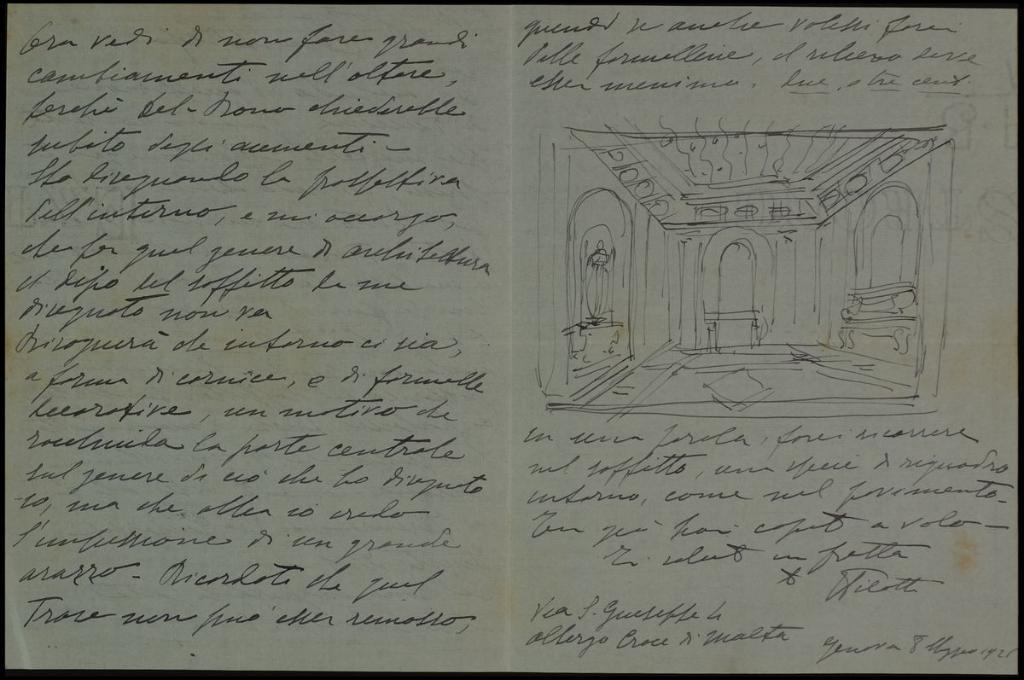 Ora vedi di non fare grandi
cambiamenti nell'altare,
perché Del-Bono chiederebbe
subito degli aumenti –
Sto disegnando la prospettiva
dell'interno, e mi accorgo,
che per quel genere di architettura
il tipo del soffitto da me
disegnato non va
Bisognerà che intorno ci sia,
a forma di cornice, e di formelle
decorative, un motivo che
racchiuda la parte centrale
sul genere di ciò che ho disegnato
io, ma che abbia io credo
l'impressione di un grande
arazzo – Ricordati che quel
Trave non può esser rimosso,
quindi se anche volessi farci
delle formelline, il rilievo deve
esser minimo, due, o tre cent.
in una parola, farei ricorrere
nel soffitto, una specie di riquadro
intorno, come nel pavimento –
Tu già hai capito a volo –
Ti saluto in fretta
Via S. Giuseppe
albergo Croce di Malta
Genova 8